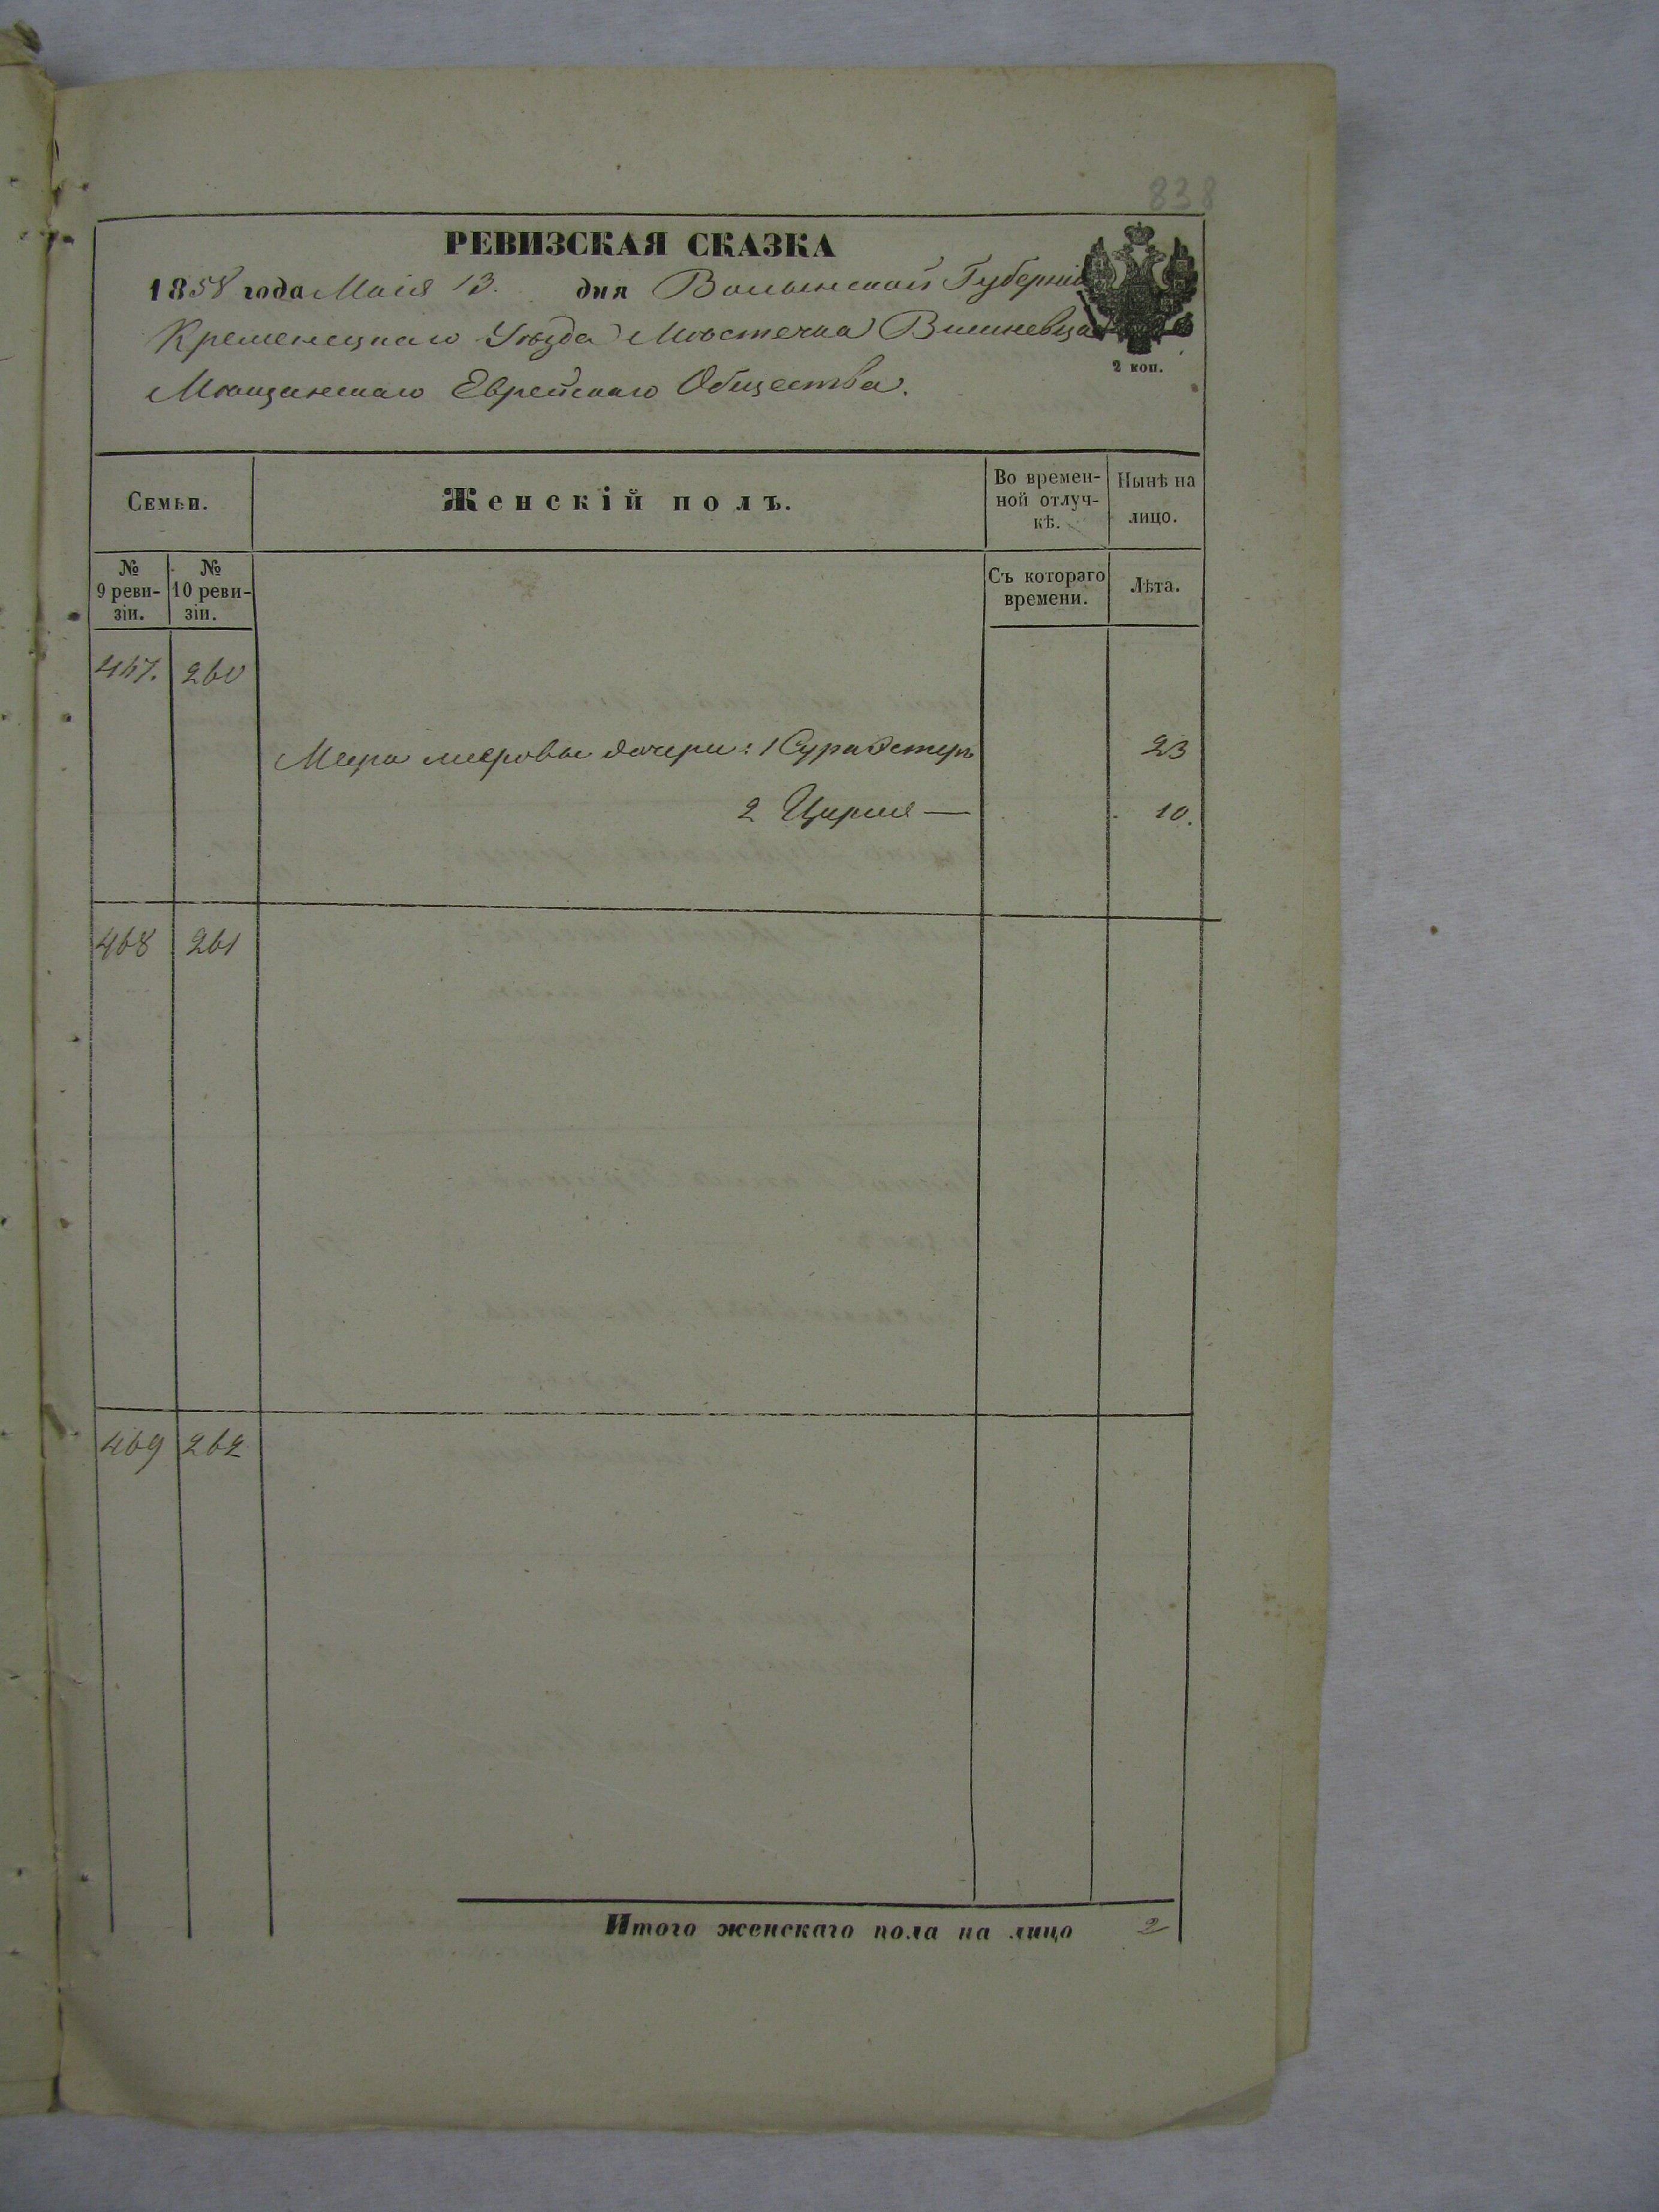 838
РЕВИЗСКАЯ СКАЗКА
1858 года Маія 13. дня Волынской Губерніи
Кременецкаго Уѣзда Мѣстечка Вишневца
Мѣщанскаго Еврейскаго Общества.
2 коп.
Семьи. Женскій полъ. Во времен- Нынѣ на
ной отлуч- лицо.
кѣ.
№ № Съ котораго Лѣта.
9 реви- 10 реви- времени.
зіи. зіи.
467. 260
Меера дочери: 1 Сура Эстеръ 23
2 Цирля — 10.
468 261
469 262
Итого женскаго пола на лицо 2